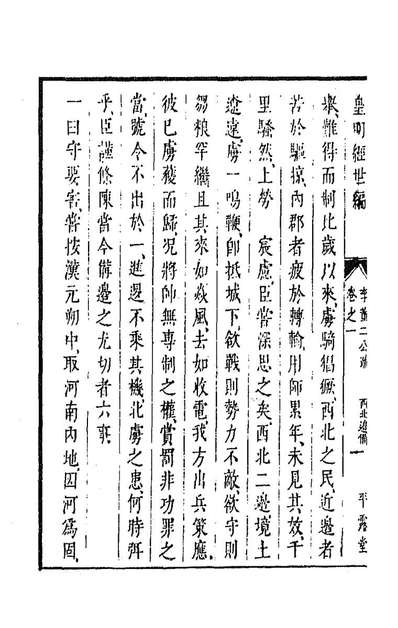 皇明經世編
卷之一
西北邊備
平露堂
舉難得而制比歲以來虜騎猖獗西北之民近邊者
苦於驅掠內郡者疲於轉輸用師累年未見其效千
里騷然上勞　宸慮臣嘗深思之矣西北二邊境土
遼遠虜一鳴鞭卽抵城下欲戰則勢力不敵欲守則
芻粮罕繼且其來如焱風去如收電我方出兵策應
彼已虜獲而歸况將帥無專制之權賞罰非功罪之
當號令不出於一進退不乘其機北虜之患何時弭
乎臣謹條陳當今備邊之尤切者六事
一曰守要害嘗按漢元朔中取河南內地因河爲固